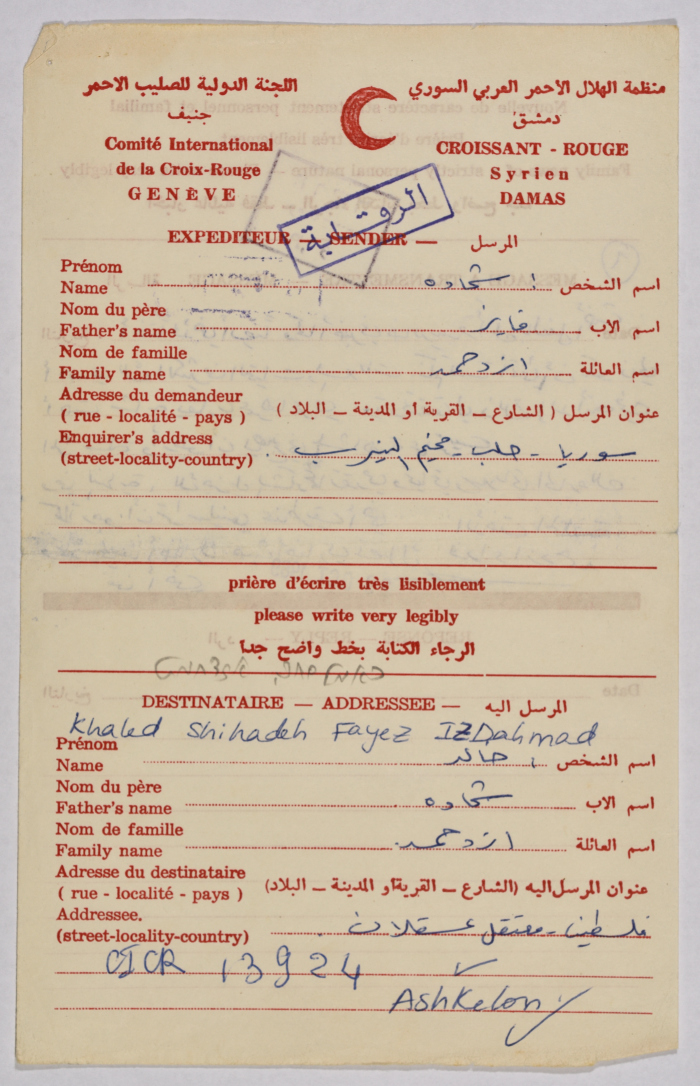 اللجنة الدولية للصليب الاحمر
جنيف
Comité International
de la Croix-Rouge
GENÈVE
منظمة الهلال الاحمر العربي السوري
دمشق
CROISSANT - ROUGE
Syrien
DAMAS
EXPEDITEUR — SENDER — المرسل
Prénom
Name اسم الشخص شحاده
Nom du père
Father's name اسم الاب فايز
Nom de famille
Family name اسم العائلة ازدحمد
Adresse du demandeur
( rue - localité - pays ) عنوان المرسل ( الشارع ـ القرية أو المدينة ـ البلاد )
Enquirer's address
(street-locality-country) سوريا - حلب - مخيم النيرب
prière d'écrire très lisiblement
please write very legibly
الرجاء الكتابة بخط واضح جدا
DESTINATAIRE — ADDRESSEE — المرسل اليه
Khaled Shihadeh Fayez IZDahmad
Prénom
Name اسم الشخص خالد
Nom du père
Father's name اسم الاب شحاده
Nom de famille
Family name اسم العائلة ازدحمد
Adresse du destinataire
( rue - localité - pays ) عنوان المرسل اليه (الشارع ـ القرية أو المدينة ـ البلاد)
Addressee.
(street-locality-country) فلسطين - معتقل عسقلان
CICR 13924
Ashkelon